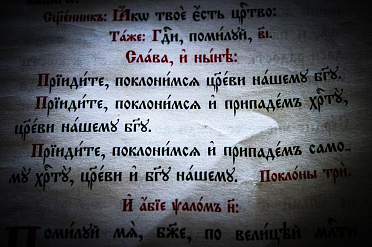 Сщ҃е́нникъ: Ꙗ҆́кѡ твоѐ є҆́сть црⷭ҇тво:
Та́же: Гдⷭ҇и, поми́лꙋй, в҃і.
Сла́ва, и҆ ны́нѣ:
Прїиди́те, поклони́мсѧ цр҃е́ви на́шемꙋ бг҃ꙋ.
Прїиди́те, поклони́мсѧ и҆ припаде́мъ хрⷭ҇тꙋ̀,
цр҃е́ви на́шемꙋ бг҃ꙋ.
Прїиди́те, поклони́мсѧ и҆ припаде́мъ само-
мꙋ̀ хрⷭ҇тꙋ̀, цр҃е́ви и҆ бг҃ꙋ на́шемꙋ. Покло́ны трѝ.
И҆ а҆́бїе ѱало́мъ н҃:
Поми́лꙋй мѧ̀, бж҃е, по вели́цѣй ма́ти